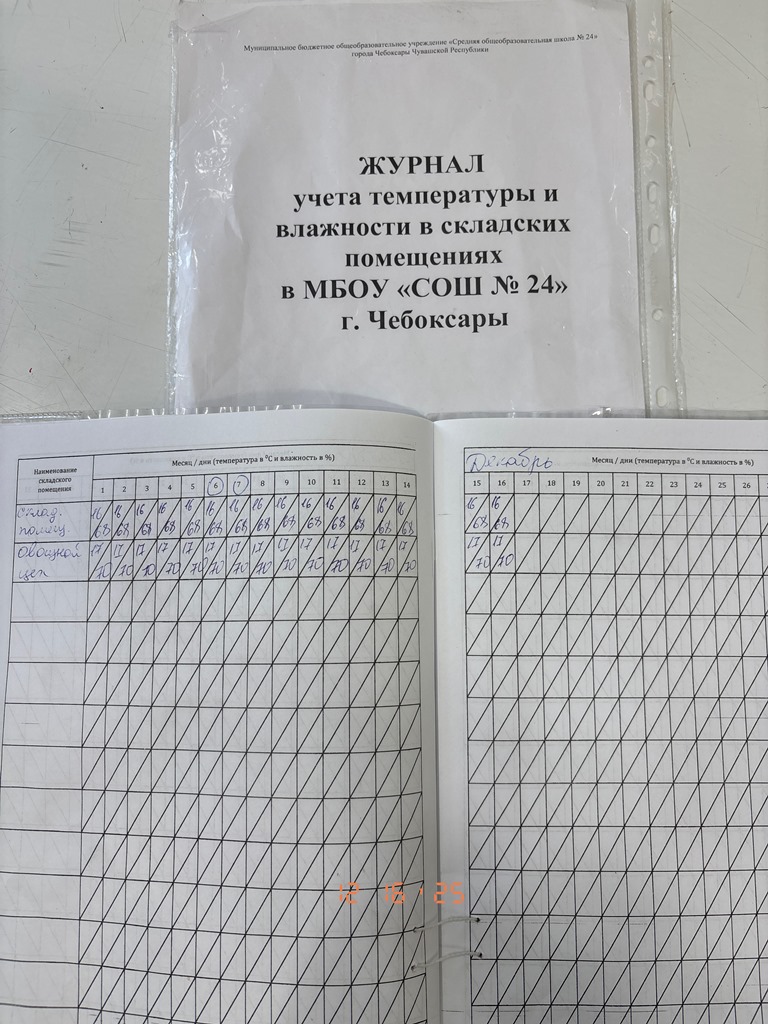 Муниципальное бюджетное общеобразовательное учреждение «Средняя общеобразовательная школа № 24»
города Чебоксары Чувашской Республики
ЖУРНАЛ
учета температуры и
влажности в складских
помещениях
в МБОУ «СОШ № 24»
г. Чебоксары
Наименование складского помещения
Месяц / дни (температура в ⁰С и влажность в %)
1 2 3 4 5 6 7 8 9 10 11 12 13 14
склад. 16 16 16 16 16 16 16 16 16 16 16 16 16 16
помещ 68 68 68 68 68 68 68 68 68 68 68 68 68 68
овощной 17 17 17 17 17 17 17 17 17 17 17 17 17 17
цех 70 70 70 70 70 70 70 70 70 70 70 70 70 70
Декабрь Месяц / дни (температура в ⁰С и влажность в %)
15 16 17 18 19 20 21 22 23 24 25 26
16 16
68 68
17 17
70 70
12 16 ' 25